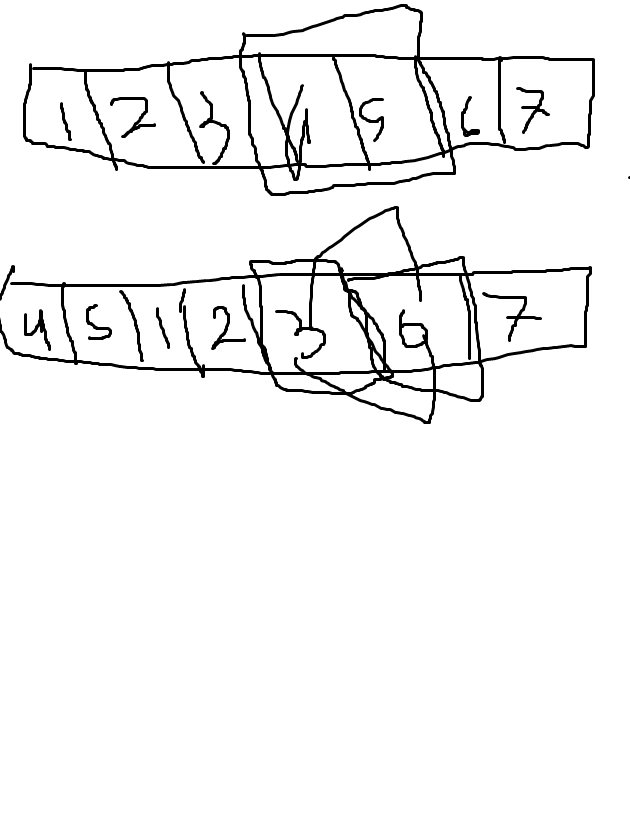 1 2 3 4 5 6 7
4 5 1 2 3 6 7